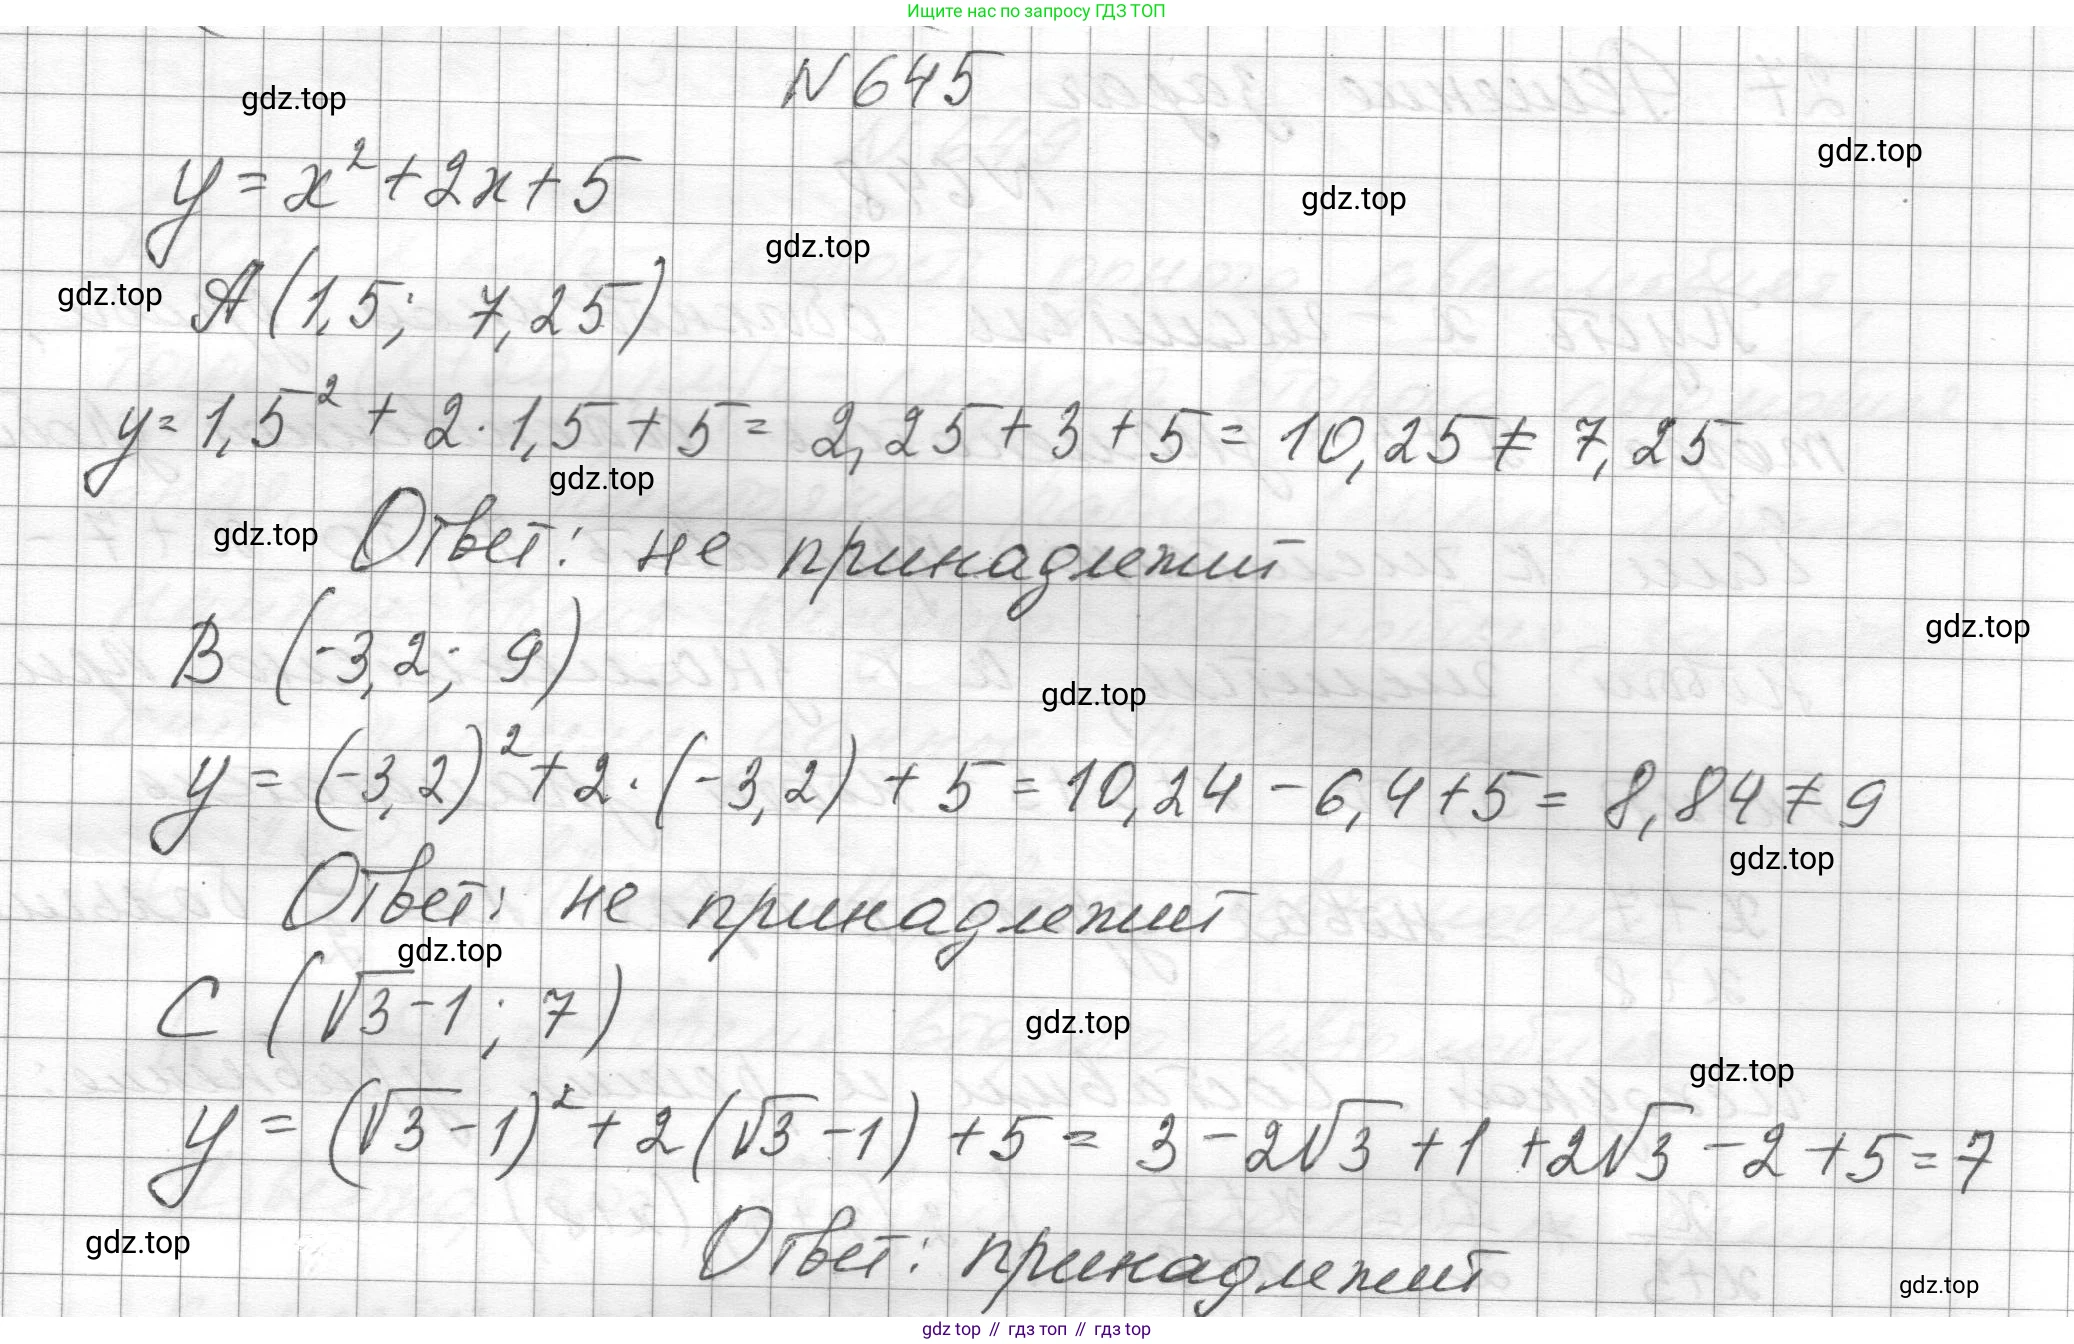 Ищите нас по запросу ГДЗ ТОП
N 645
gdz.top
gdz.top
y = x² + 2x + 5
gdz.top
gdz.top
gdz.top
A (1,5; 7,25)
y = 1,5² + 2 · 1,5 + 5 = 2,25 + 3 + 5 = 10,25 ≠ 7,25
gdz.top
gdz.top
Ответ: не принадлежит
gdz.top
B (-3,2; 9)
gdz.top
y = (-3,2)² + 2 · (-3,2) + 5 = 10,24 - 6,4 + 5 = 8,84 ≠ 9
gdz.top
Ответ: не принадлежит
gdz.top
C (√3 - 1; 7)
gdz.top
gdz.top
y = (√3 - 1)² + 2(√3 - 1) + 5 = 3 - 2√3 + 1 + 2√3 - 2 + 5 = 7
gdz.top
Ответ: принадлежит
gdz.top
gdz top // гдз топ // гдз top